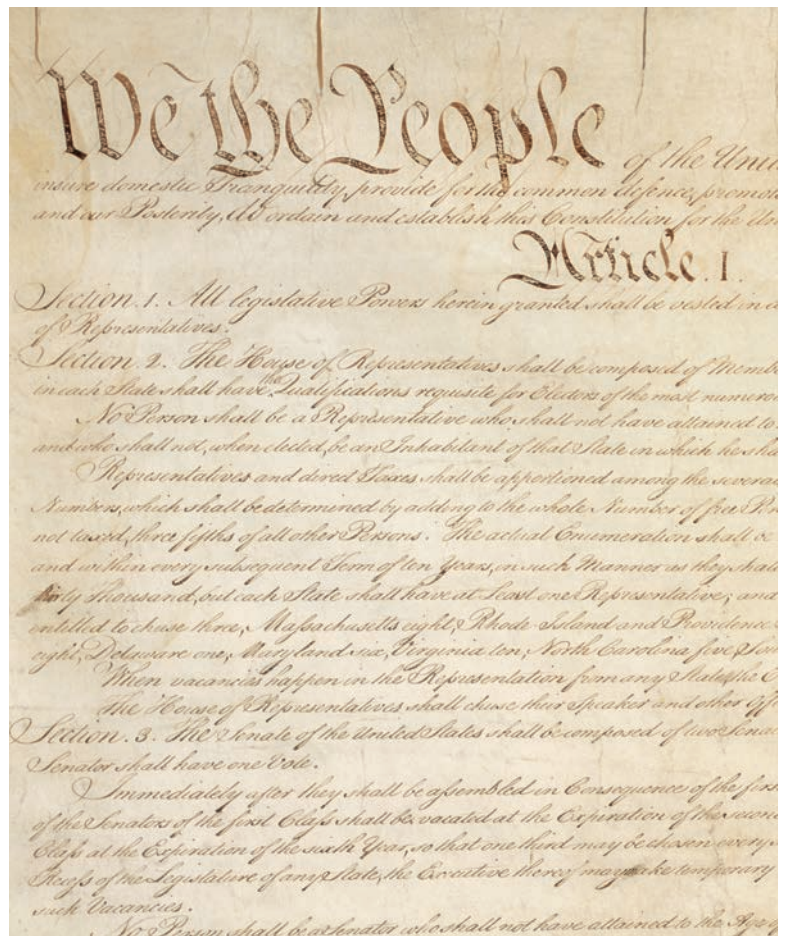 We the People of the Uni
insure domestic Tranquility, provide for the common defence, promot
and our Posterity, do ordain and establish this Constitution for the Un
Article. I.
Section. 1. All legislative Powers herein granted shall be vested in a
of Representatives.
Section. 2. The House of Representatives shall be composed of Memb
in each State shall have the Qualifications requisite for Electors of the most numero
No Person shall be a Representative who shall not have attained to
and who shall not, when elected, be an Inhabitant of that State in which he sha
Representatives and direct Taxes shall be apportioned among the severa
Numbers, which shall be determined by adding to the whole Number of free P
not taxed, three fifths of all other Persons. The actual Enumeration shall be
and within every subsequent Term of ten Years, in such Manner as they shall
thirty Thousand, but each State shall have at Least one Representative; and
entitled to chuse three, Massachusetts eight, Rhode-Island and Providence
eight, Delaware one, Maryland six, Virginia ten, North Carolina five, Sou
When vacancies happen in the Representation from any State, the E
The House of Representatives shall chuse their Speaker and other Off
Section. 3. The Senate of the United States shall be composed of two Sena
Senator shall have one Vote.
Immediately after they shall be assembled in Consequence of the first
of the Senators of the first Class shall be vacated at the Expiration of the secon
Class at the Expiration of the sixth Year, so that one third may be chosen every
Recess of the Legislature of any State, the Executive thereof may make temporary
such Vacancies.
No Person shall be a Senator who shall not have attained to the Age o